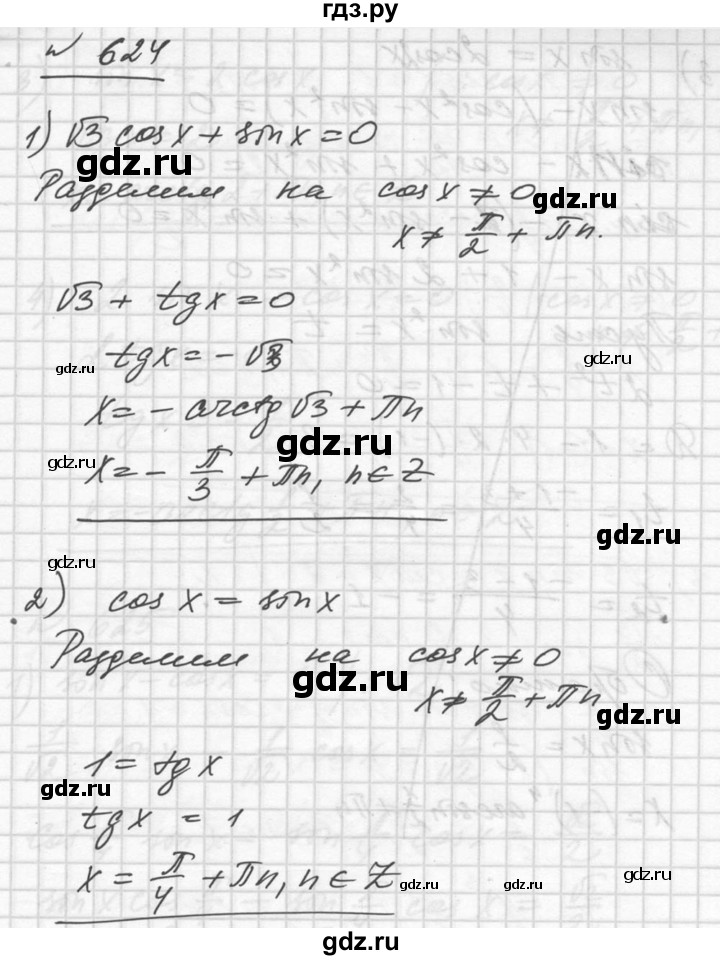 гдз.ру
№ 624
1) √3 cosx + sinx = 0
gdz.ru
Разделим на cosx ≠ 0
gdz.ru
x ≠ π/2 + πn.
√3 + tgx = 0
gdz.ru
tgx = - √3
gdz.ru
x = - arctg √3 + πn
gdz.ru
gdz.ru
x = - π/3 + πn, n ∈ Z
gdz.ru
gdz.ru
2) cosx = sinx
Разделим на cosx ≠ 0
gdz.ru
x ≠ π/2 + πn
gdz.ru
1 = tgx
gdz.ru
tgx = 1
x = π/4 + πn, n ∈ Z
gdz.ru
gdz.ru
gdz.ru
gdz.ru